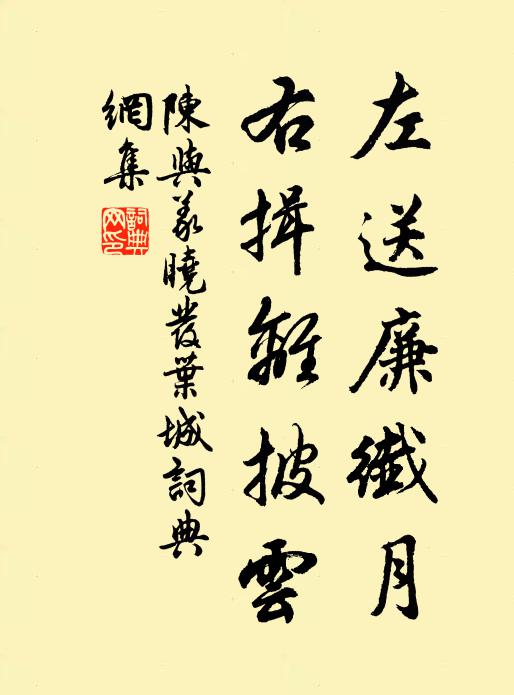 左送廉纖月
右揖離披雲
陳與義曉發葉城詞典
網集
詞典
网印